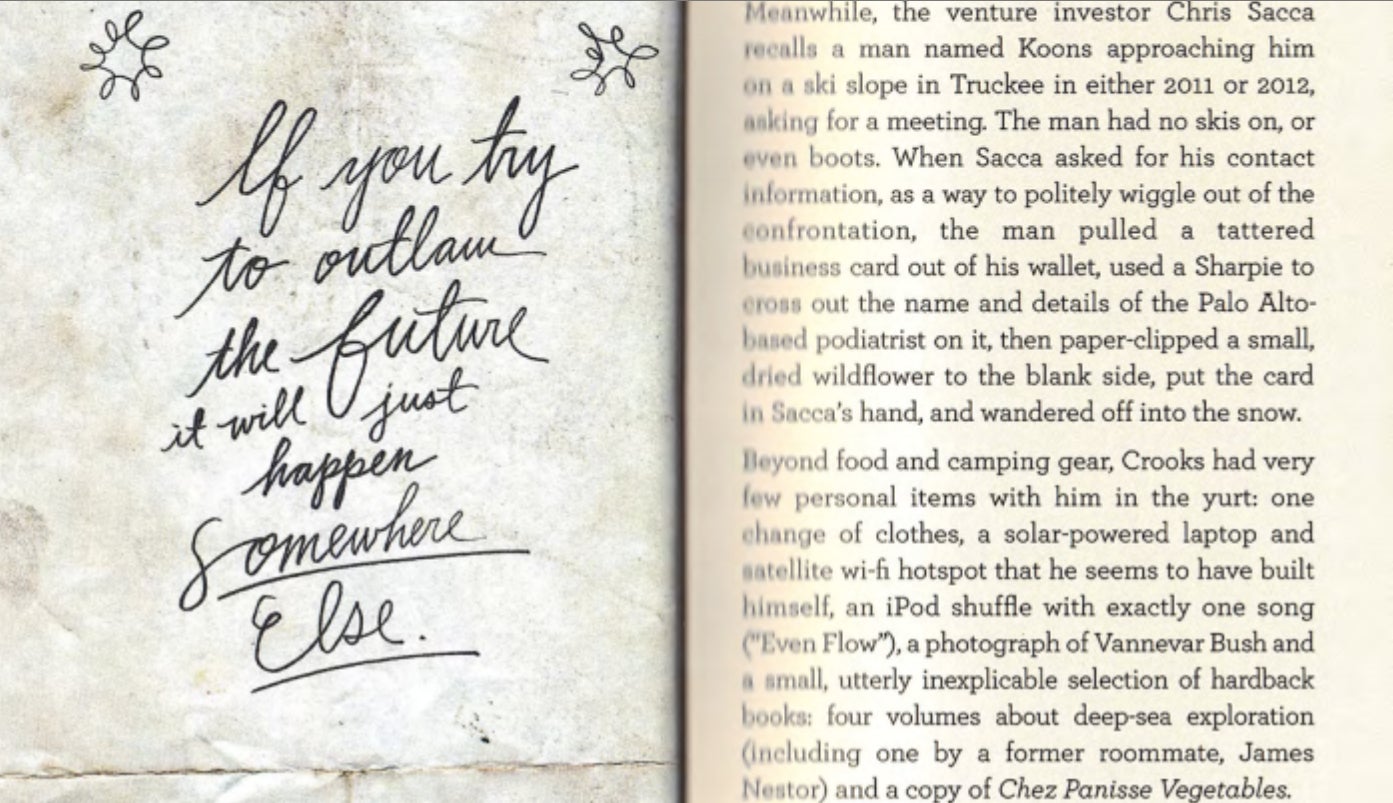 If you try
to outlaw
the future
it will just
happen
Somewhere
Else.
Meanwhile, the venture investor Chris Sacca
recalls a man named Koons approaching him
on a ski slope in Truckee in either 2011 or 2012,
asking for a meeting. The man had no skis on, or
even boots. When Sacca asked for his contact
information, as a way to politely wiggle out of the
confrontation, the man pulled a tattered
business card out of his wallet, used a Sharpie to
cross out the name and details of the Palo Alto-
based podiatrist on it, then paper-clipped a small,
dried wildflower to the blank side, put the card
in Sacca's hand, and wandered off into the snow.
Beyond food and camping gear, Crooks had very
few personal items with him in the yurt: one
change of clothes, a solar-powered laptop and
satellite wi-fi hotspot that he seems to have built
himself, an iPod shuffle with exactly one song
("Even Flow"), a photograph of Vannevar Bush and
a small, utterly inexplicable selection of hardback
books: four volumes about deep-sea exploration
(including one by a former roommate, James
Nestor) and a copy of Chez Panisse Vegetables.